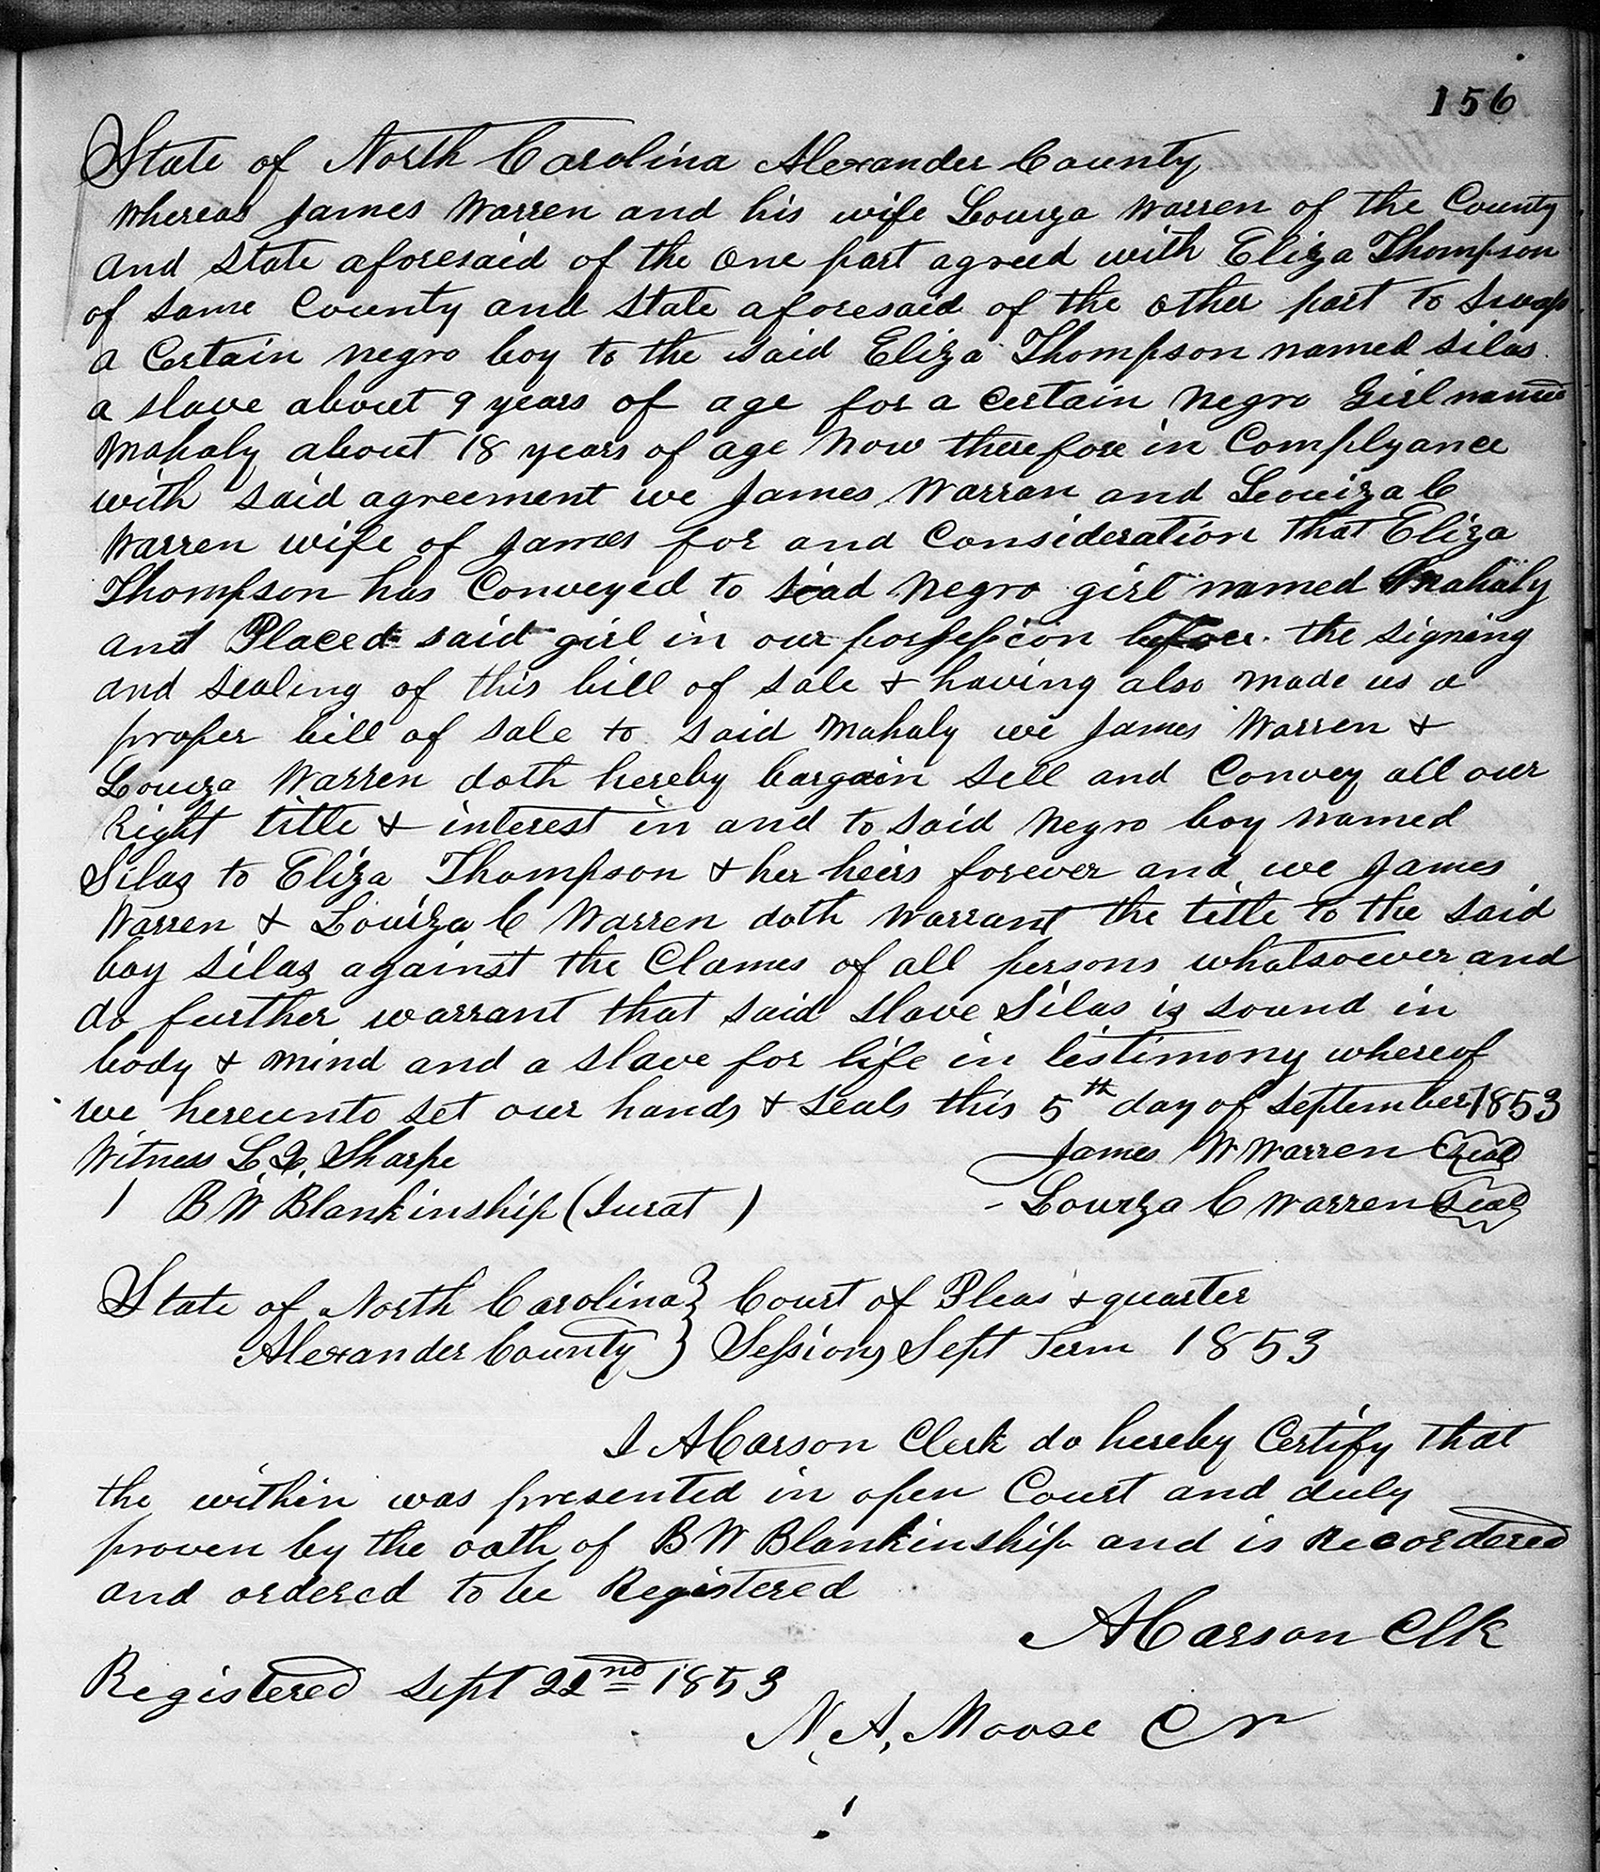 156
State of North Carolina Alexander County
Whereas James Warren and his wife Louiza Warren of the County
and State aforesaid of the one part agreed with Eliza Thompson
of same County and State aforesaid of the other part to Swap
a Certain negro boy to the said Eliza Thompson named Silas
a slave about 9 years of age for a Certain Negro Girl named
Mahaly about 18 years of age Now therefore in Complyance
with said agreement we James Warran and Leouiza C
Warren wife of James for and Consideration that Eliza
Thompson has Conveyed to siad Negro girl named Mahaly
and Placed said girl in our possession before the signing
and sealing of this bill of sale & having also made us a
proper bill of sale to said Mahaly we James Warren &
Louiza Warren doth hereby bargain sell and Convey all our
Right title & interest in and to said Negro boy named
Silas to Eliza Thompson & her heirs forever and we James
Warren & Louiza C Warren doth warrant the title to the said
boy Silas against the Clames of all persons whatsoever and
do further warrant that said slave Silas is sound in
body & mind and a slave for life in testimony whereof
we hereunto set our hands & seals this 5th day of September 1853
Witness L. Q. Sharpe James W Warren Seal
B W Blankinship (Jurat) Louiza C Warren Seal
State of North Carolina } Court of Pleas & quarter
Alexander County } Sessions Sept Term 1853
I A Carson Clerk do hereby Certify that
the within was presented in open Court and duly
proven by the oath of B W Blankinship and is Recordered
and ordered to be Registered
A Carson Clk
Registered Sept 22nd 1853
N. A. Moose C R